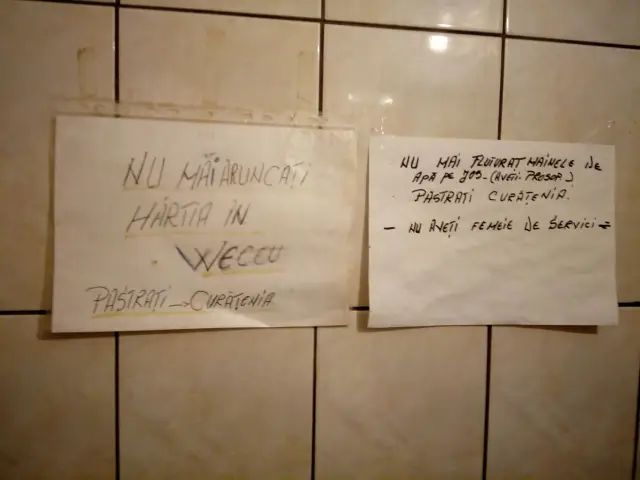 NU MĂI ARUNCAȚI
HÂRTIA ÎN
WECEU
PĂSTRAȚI → CURĂȚENIA
NU MAI FLUTURAT MAINELE DE
APA PE JOS - (AVEȚI PROSOP)
PASTRAȚI CURĂȚENIA.
- NU AVEȚI FEMEIE DE SERVICI -